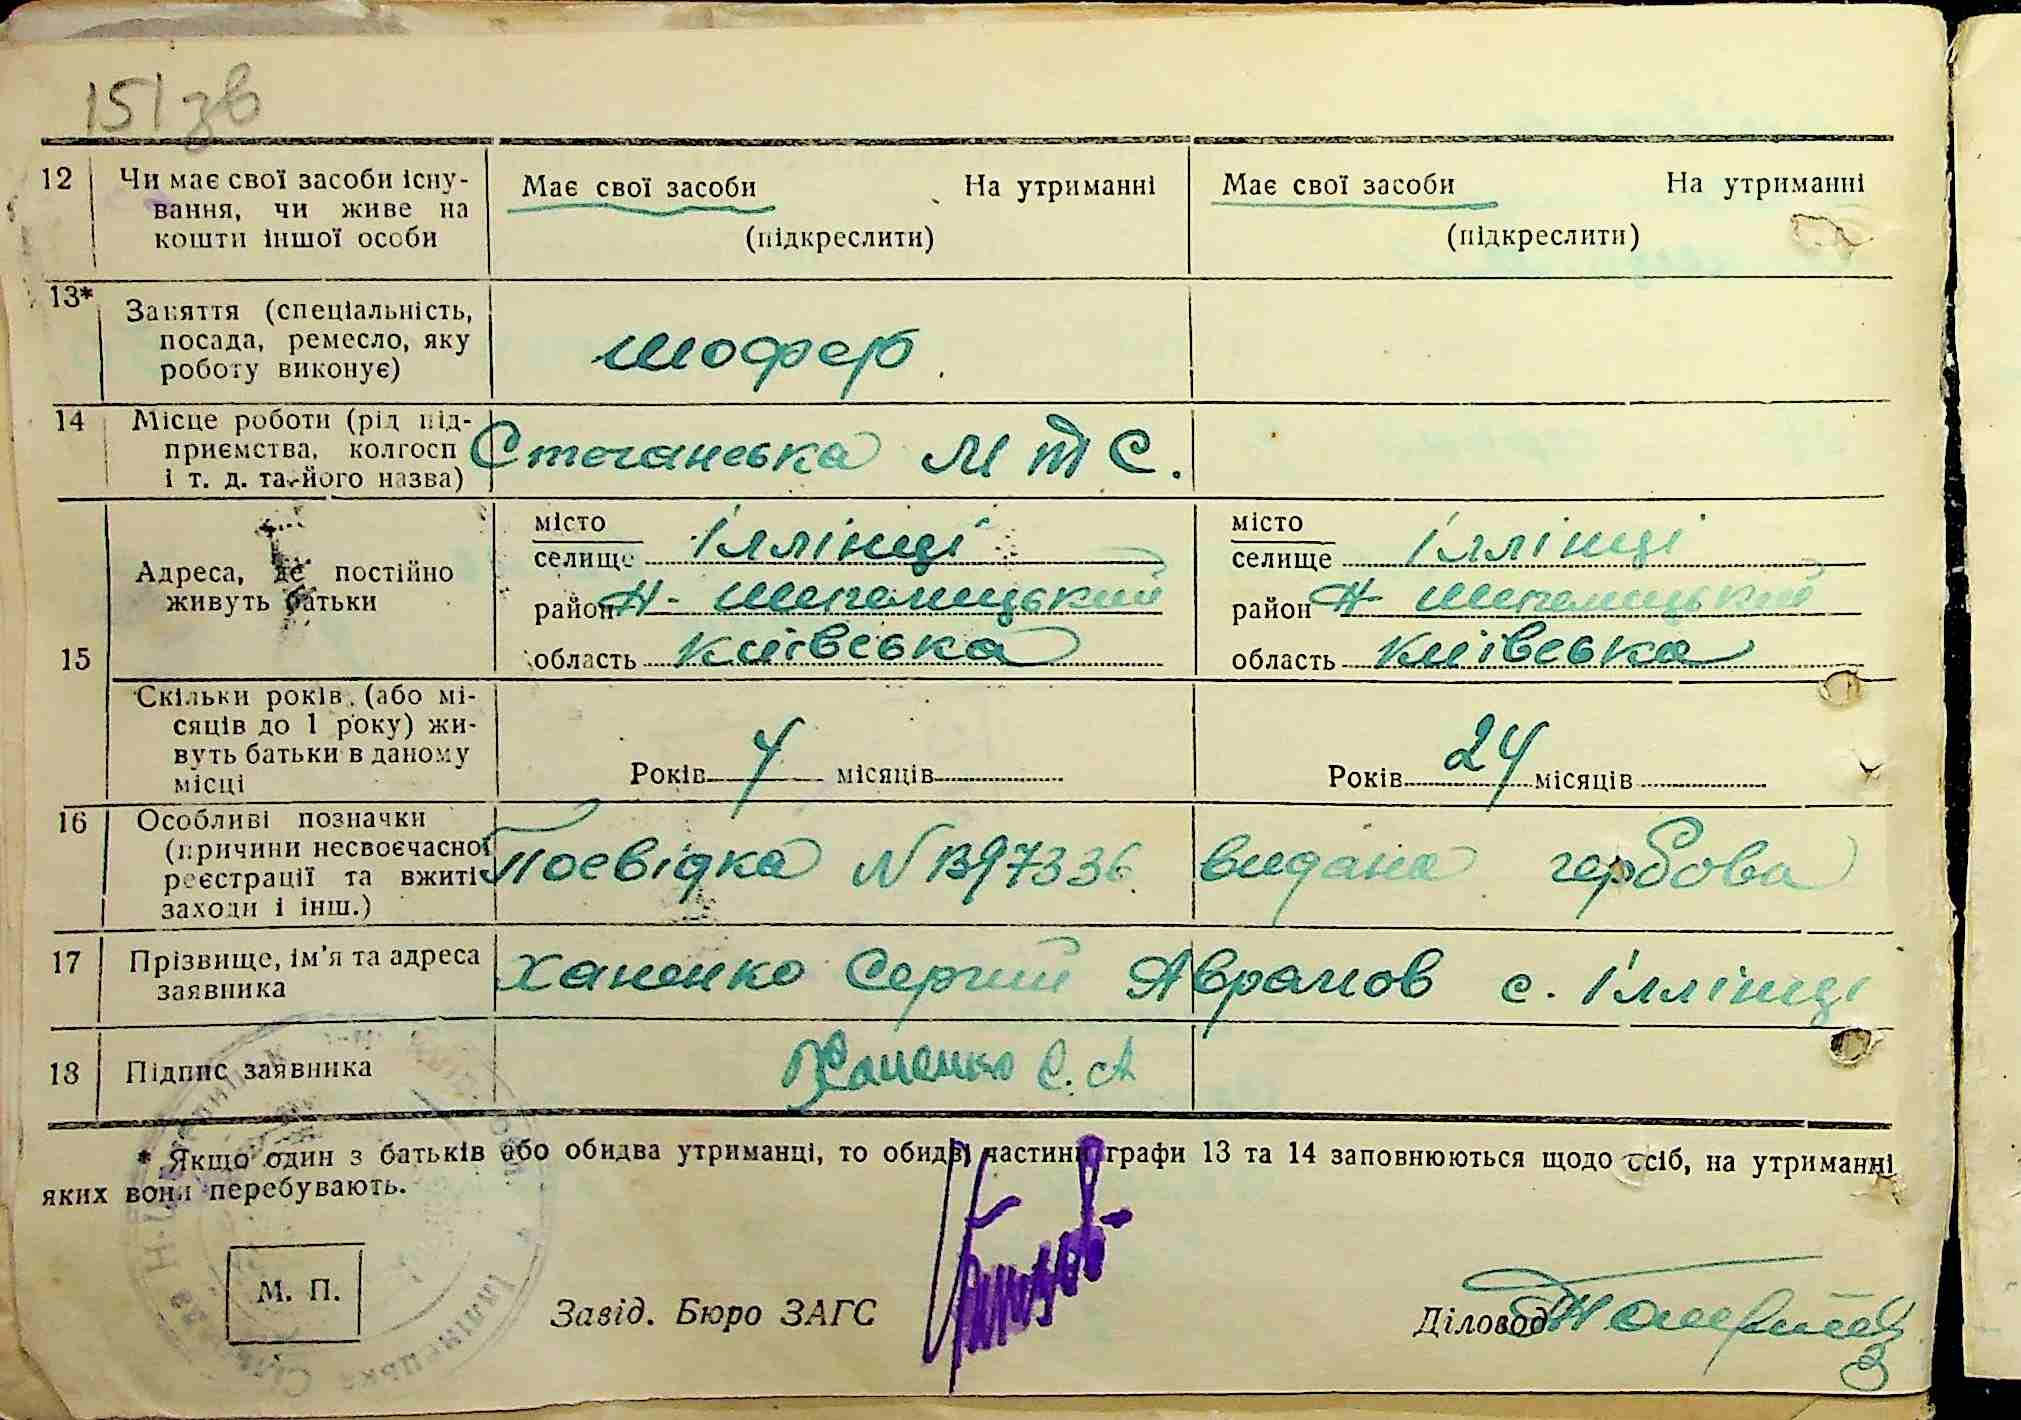 151 зв
12 Чи має свої засоби існу-
вання, чи живе на
кошти іншої особи
Має свої засоби На утриманні
(підкреслити)
Має свої засоби На утриманні
(підкреслити)
13* Заняття (спеціальність,
посада, ремесло, яку
роботу виконує)
шофер
14 Місце роботи (рід під-
приємства, колгосп
і т. д. та його назва)
Стечанська МТС.
15
Адреса, де постійно
живуть батьки
місто
селище Іллінці
район Н-Шепелицький
область Київська
місто
селище Іллінці
район Н Шепелицький
область Київська
Скільки років (або мі-
сяців до 1 року) жи-
вуть батьки в даному
місці
Років 4 місяців
Років 24 місяців
16 Особливі позначки
(причини несвоєчасної
реєстрації та вжиті
заходи і інш.)
Посвідка N 397336 видана гербова
17 Прізвище, ім'я та адреса
заявника
Ханенко Сергий Аврамов с. Іллінці
18 Підпис заявника
Ханенко С. А
* Якщо один з батьків або обидва утриманці, то обидві частини графи 13 та 14 заповнюються щодо осіб, на утриманні
яких вони перебувають.
М. П.
Завід. Бюро ЗАГС
Діловод
Іллінецька Сільрада